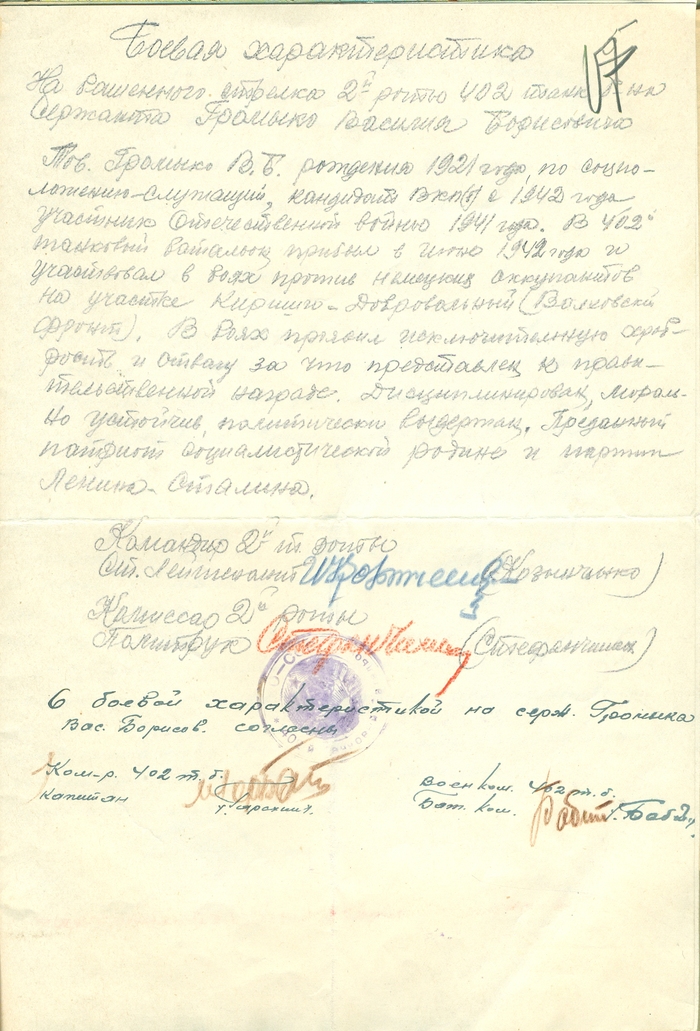 Боевая характеристика
На башенного стрелка 2й роты 402 танк. б-на
Сержанта Громыко Василия Борисовича
Тов. Громыко В.Б. рождения 1921 года, по соцпо-
ложению-служащий, кандидат ВКП(б) с 1942 года
участник Отечественной войны 1941 года. В 402й
танковый батальон прибыл в июне 1942 года и
участвовал в боях против немецких оккупантов
на участке Кириши-Добровольный (Волховский
фронт). В боях проявил исключительную храб-
рость и отвагу за что представлен к прави-
тельственной награде. Дисциплинирован, мораль-
но устойчив, политически выдержан. Преданный
патриот социалистической родине и партии
Ленина-Сталина.
Командир 2й т. роты
Ст. Лейтенант
Комиссар 2й роты
Политрук (Стефанчишин)
С боевой характеристикой на серж. Громыка
Вас. Борисов. согласны
Ком-р. 402 т.б.
капитан
Военком. 402 т.б.
Бат. ком.